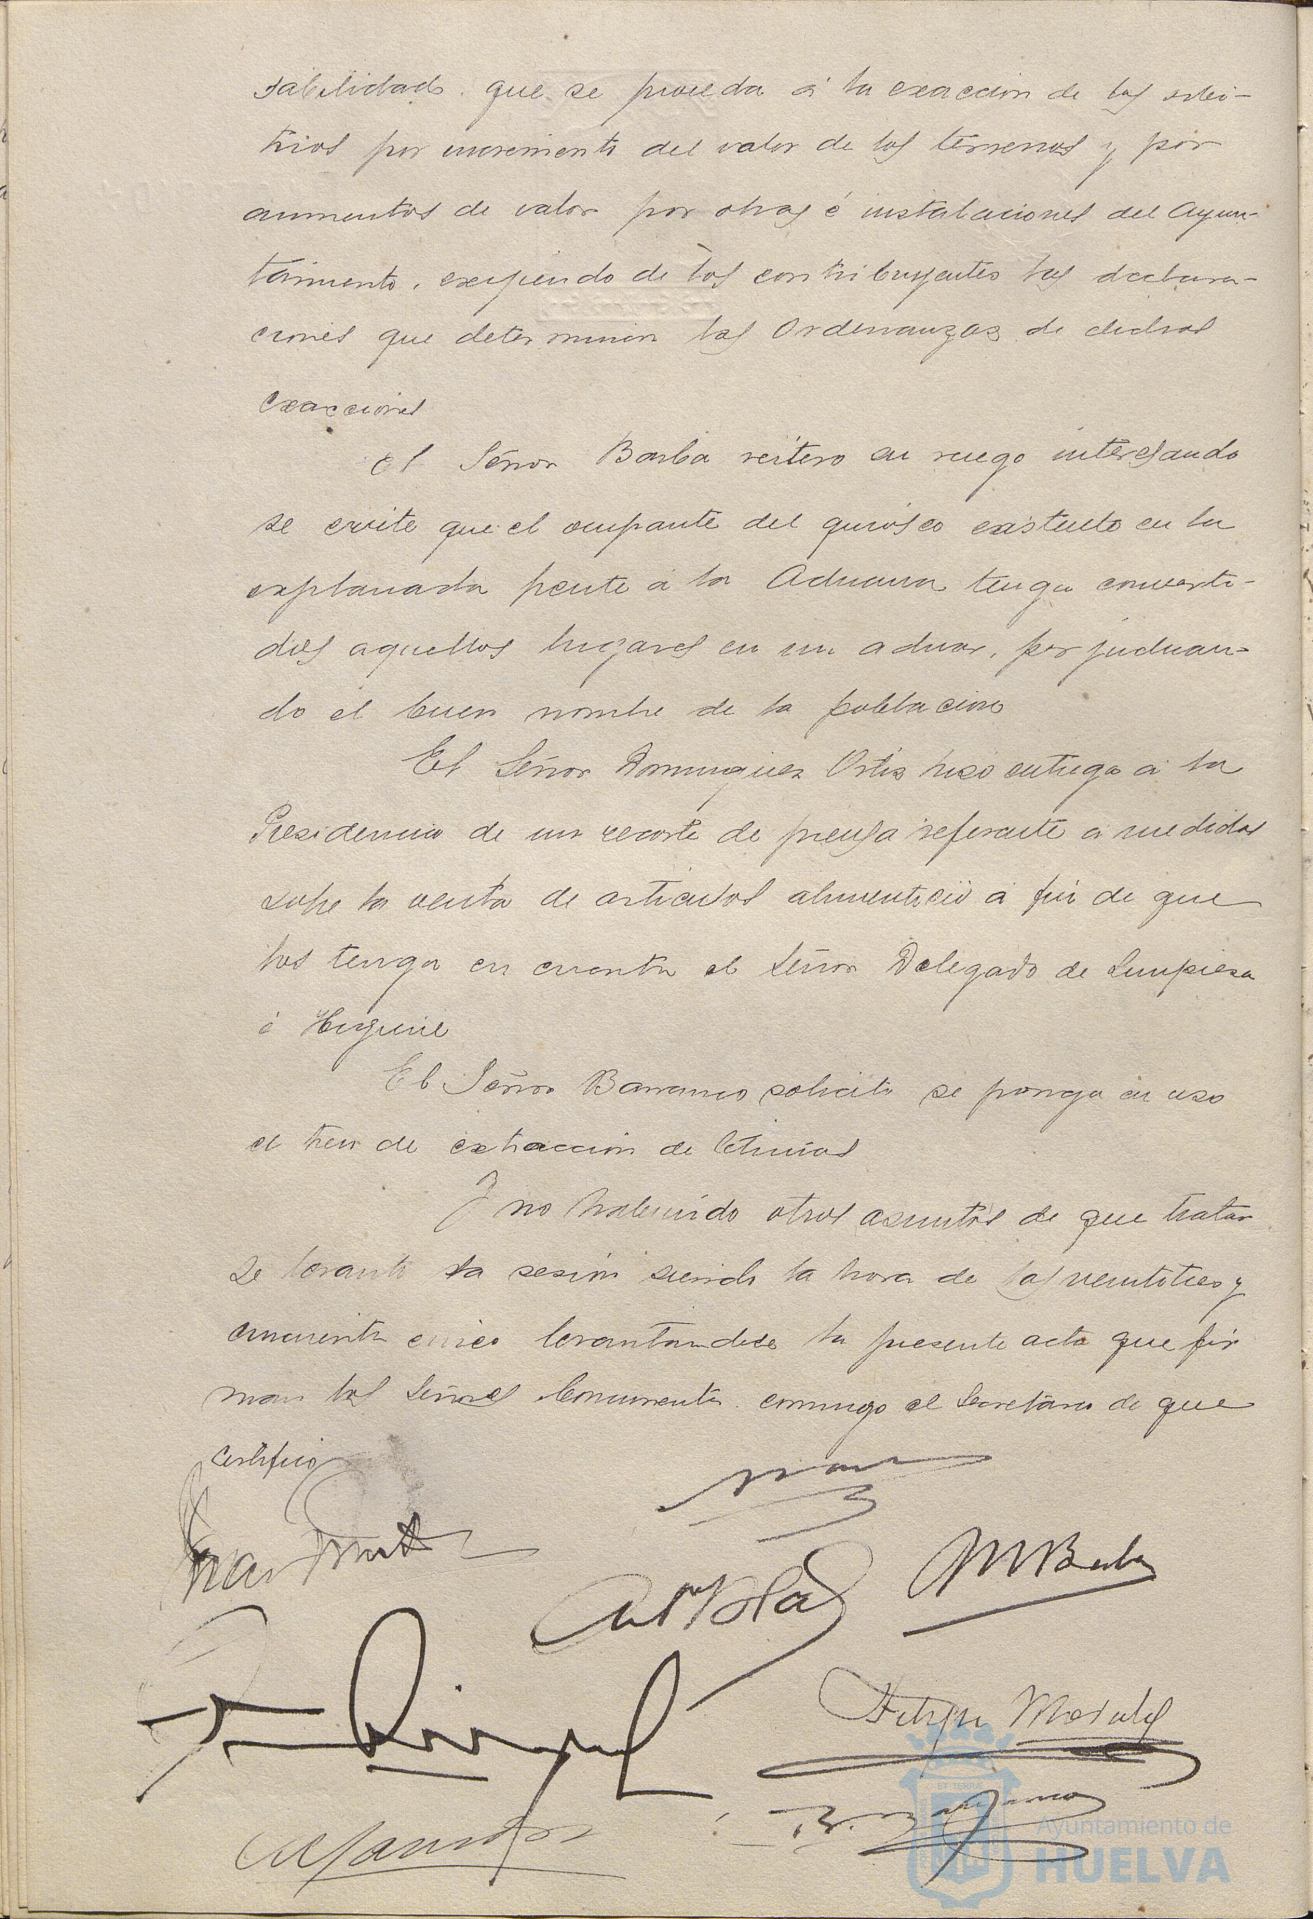 sabilidad que se proceda á la exacción de los arbi-
trios por incremento del valor de los terrenos y por
aumentos de valor por obras é instalaciones del Ayun-
tamiento, exigiendo de los contribuyentes las declara-
ciones que determinan las Ordenanzas de dichas
exacciones
El Señor Barba reitero su ruego interesando
se evite que el ocupante del quiosco existente en la
explanada frente á la Aduana tenga converti-
dos aquellos lugares en un aduar, perjudican-
do el buen nombre de la población
El Señor Dominguez Ortiz hizo entrega á la
Presidencia de un recorte de prensa referente á medidas
sobre la venta de articulos alimenticio á fin de que
los tenga en cuenta el Señor Delegado de Limpieza
é Higiene
El Señor Barranco solicito se ponga en uso
el tren de extracción de letrinas
Y no habiendo otros asuntos de que tratar
se levanto la sesión siendo la hora de las veintitres y
cincuenta cinco levantandose la presente acta que fir
man los Señores Concurrentes conmigo el Secretario de que
certifico
M Barba
Felipe Morales
B. Barranco
ET TERRAE
Ayuntamiento de
HUELVA